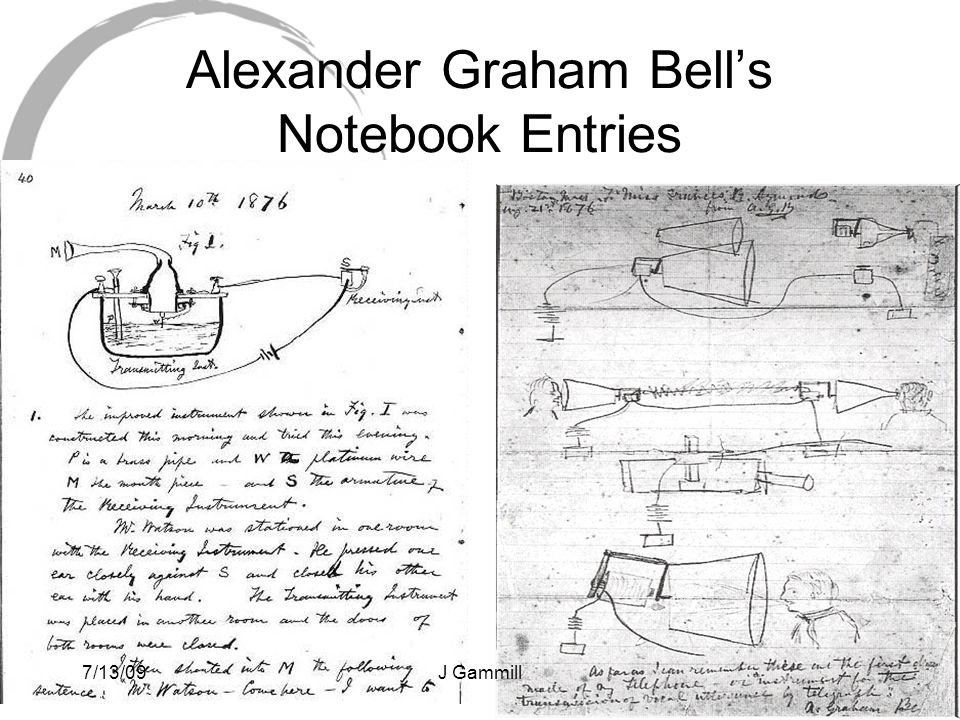 Alexander Graham Bell’s
Notebook Entries
40
March 10th 1876
Fig 1.
M
S
Receiving Inst
P
W
Transmitting Inst.
1. The improved instrument shown in Fig. I was
constructed this morning and tried this evening.
P is a brass pipe and W the platinum wire
M the mouth piece – and S the armature of
the Receiving Instrument.
Mr. Watson was stationed in one room
with the Receiving Instrument. He pressed one
ear closely against S and closed his other
ear with his hand. The Transmitting Instrument
was placed in another room and the doors of
both rooms were closed.
I then shouted into M the following
sentence: "Mr. Watson – Come here – I want to
Boston Mass To Miss Frances
Aug. 21st 1876 from A.G.B
As far as I can remember these are the first
made of my telephone – or instrument for the
transmission of vocal utterance by telegraph.
A. Graham Bell
7/13/09
J Gammill